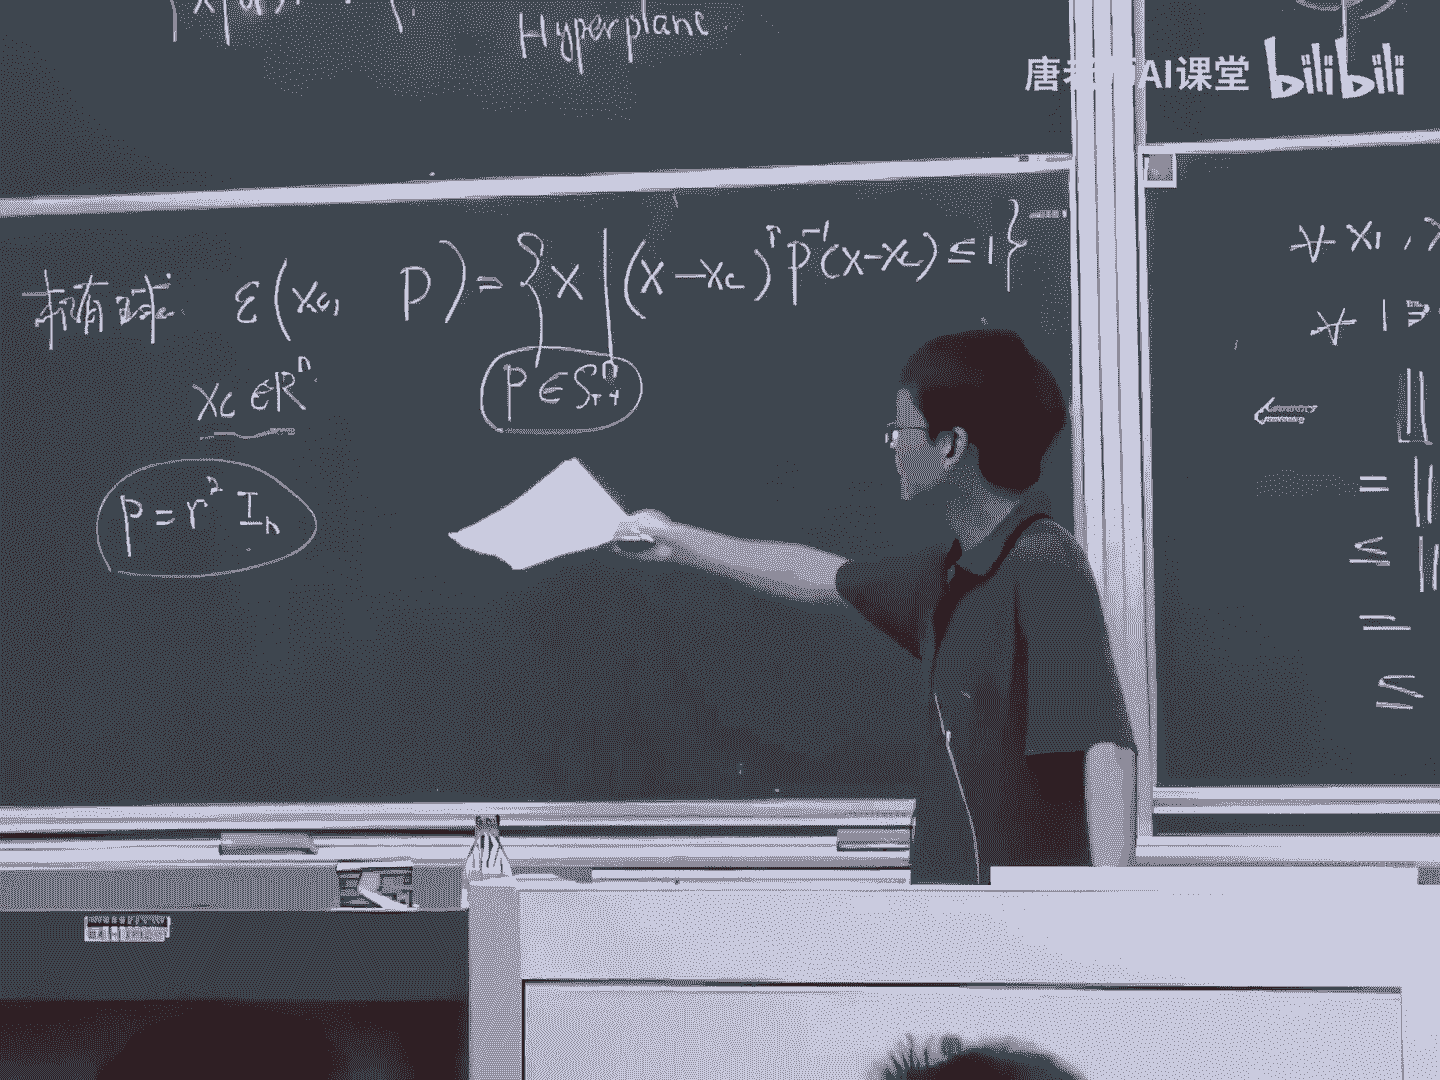 Hyperplane
唐 AI课堂 bilibili
ε(xc, P) = {x | (x-xc)ᵀ P⁻¹(x-xc) ≤ 1}
xc ∈ Rⁿ
P ∈ Sⁿ₊₊
P = r² Iₙ
∀ x₁,
∀ 1 ≥
⇐ ||
= ||
≤ ||
=
≤